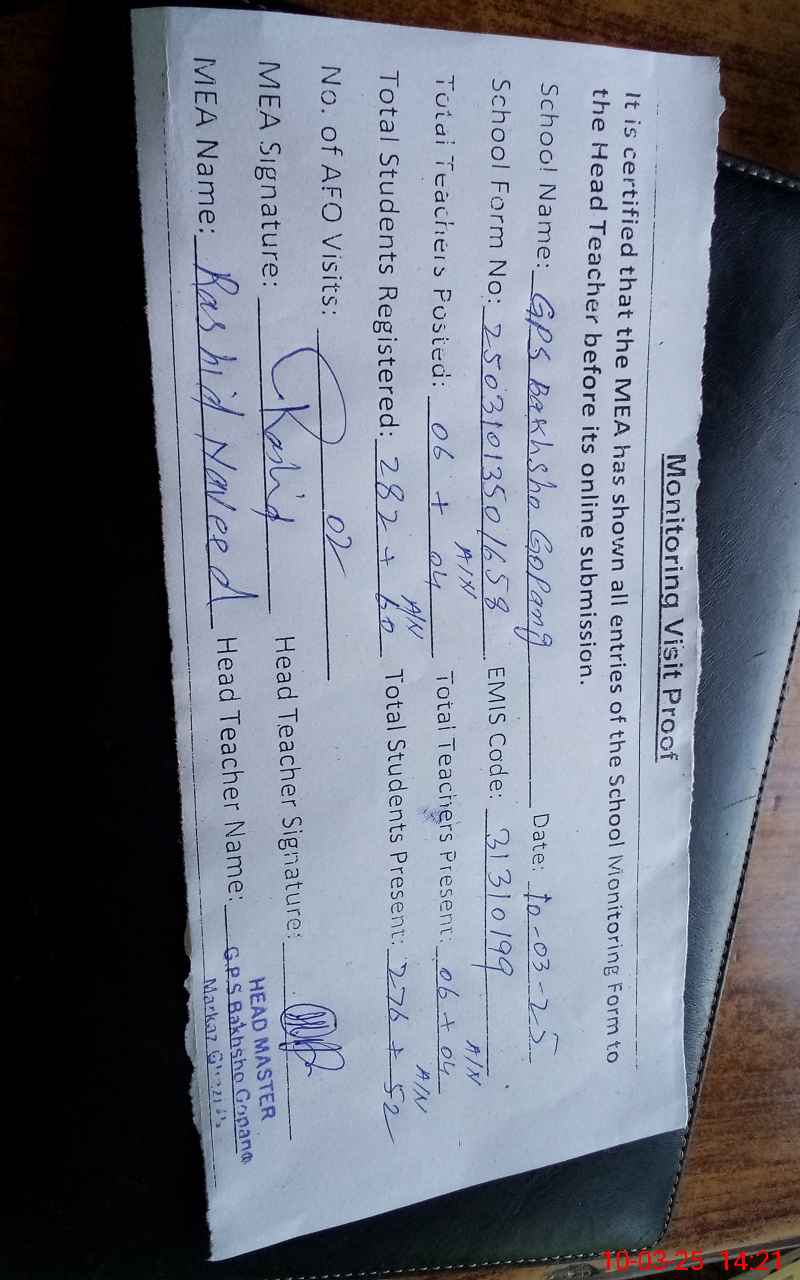 Monitoring Visit Proof
It is certified that the MEA has shown all entries of the School Monitoring Form to
the Head Teacher before its online submission.
School Name: GPS Bakhsho Gopang Date: 10-03-25
School Form No: 25031013501658 EMIS Code: 31310199
Total Teachers Posted: 06 + 04 A/N Total Teachers Present: 06 + 04 A/N
Total Students Registered: 282 + 60 A/N Total Students Present: 276 + 52 A/N
No. of AFO Visits: 02
MEA Signature: Rashid Head Teacher Signature:
MEA Name: Rashid Naveed Head Teacher Name:
HEAD MASTER
G.P.S Bakhsho Gopang
Markaz
10-03-25 14:21